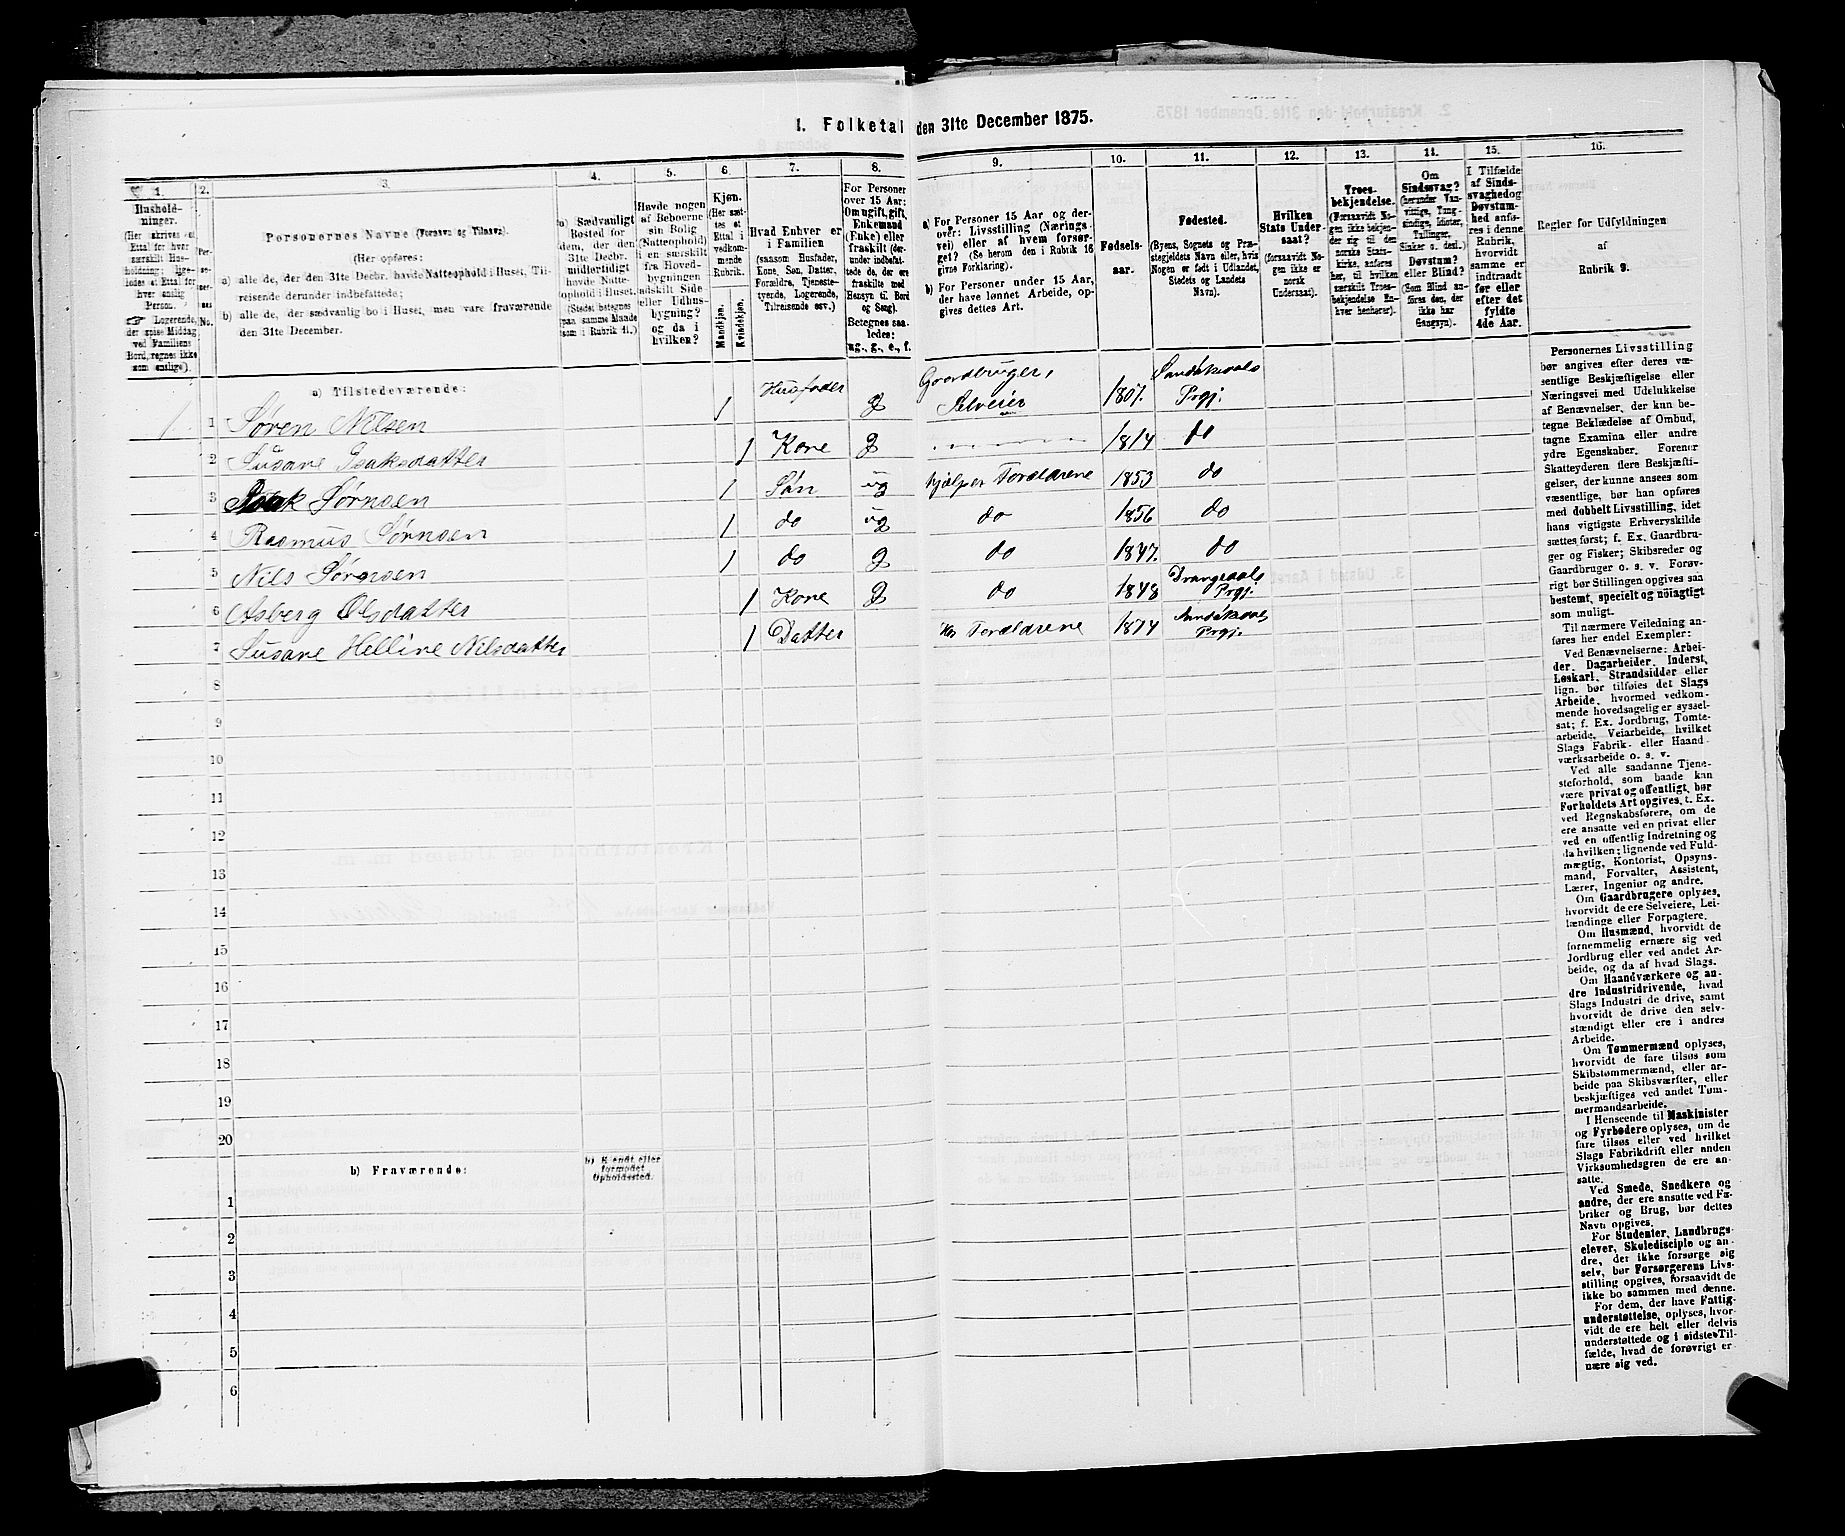 1. Folketal den 31te December 1875.
1.
Husholdninger.
(Her skrives et
Ettal for hver
særskilt Husholdning; ligeledes
et Ettal for
hver enslig
Person.
☞ Logerende,
der spise Middag
ved Familiens
Bord, regnes ikke
som enslige).
2.
Personernes No.
3.
Personernes Navne (Fornavn og Tilnavn).
(Her opføres:
a) alle de, der den 31te Decbr. havde Natteophold i Huset, Tilreisende derunder indbefattede;
b) alle de, der sædvanlig bo i Huset, men vare fraværende
den 31te December.
4.
b) Sædvanligt
Bosted for
dem, der den
31te Decbr.
midlertidigt
havde Natteophold i Huset.
(Stedet betegnes
paa samme Maade
som i Rubrik 11.)
5.
Havde nogen
af Beboerne
sin Bolig
(Natteophold)
i en særskilt
fra Hovedbygningen
adskilt Side- eller Udhusbygning?
og da i
hvilken?
6.
Kjøn.
(Her sættes et
Ettal i
vedkommende
Rubrik.
Mandkjøn.
Kvindekjøn.
7.
Hvad Enhver er
i Familien
(saasom Husfader,
Kone, Søn, Datter,
Forældre, Tjenestetyende, Logerende,
Tilreisende osv.)
8.
For Personer
over 15 Aar:
Om ugift, gift,
Enkemand
(Enke) eller
fraskilt (derunder indbefattede de, der ere
fraskilte med
Hensyn til Bord
og Seng).
Betegnes saaledes:
ug., g., e., f.
9.
a) For Personer 15 Aar og derover: Livsstilling (Næringsvei) eller af hvem forsørget? (Se herom den i Rubrik 16
givne Forklaring).
b) For Personer under 15 Aar,
der have lønnet Arbeide, opgives dettes Art.
10.
Fødselsaar.
11.
Fødested.
(Byens, Sognets og Præstegjeldets Navn eller, hvis
Nogen er født i Udlandet,
Stedets og Landets
Navn).
12.
Hvilken
Stats Undersaat?
(forsaavidt Nogen ikke er
norsk
Undersaat).
13.
Troesbekjendelse.
(Forsaavidt Nogen ikke bekjender sig til den
norske Statskirke, anføres
her, til hvilken
særskilt Troesbekjendelse Enhver henhører).
14.
Om
Sindssvag?
(herunder Vanvittige, Tungsindige, Idioter,
Tullinger,
Sinker o. desl.)
Døvstum?
eller Blind?
(Som Blind anføres den, der
ikke har
Gangsyn).
15.
I Tilfælde
af Sindssvaghed og
Døvstumhed anføres i denne
Rubrik,
hvorvidt
samme er
indtraadt
før eller
efter det
fyldte
4de Aar.
16.
Regler for Udfyldningen
af
Rubrik 9.
a) Tilstedeværende:
1 1 Søren Nilsen 1 Husfader g Gaardbruger, Selveier 1807. Sandøkedals Prgj.
2 Susane Isaksdatter 1 Kone g 1814 do
3 Isak Sørnsen 1 Søn ug hjælper Forældrene 1853 do
4 Rasmus Sørnsen 1 do ug do 1856 do
5 Nils Sørensen 1 do g do 1847. do
6 Asberg Olsdatter 1 Kone g do 1848 Drangedals Prgj.
7 Susane Helline Nilsdatter 1 Datter Forældrene 1874 Sandøkedals Prgj.
8
9
10
11
12
13
14
15
16
17
18
19
20
b) Fraværende:
b) Kjendt eller
formodet
Opholdssted.
1
2
3
4
5
6
Personernes Livsstilling
bør angives efter deres væsentlige Beskjæftigelse eller
Næringsvei med Udelukkelse
af Benævnelser, der kun betegne Beklædelse af Ombud,
tagne Examina eller andre
ydre Egenskaber. Forener
Skatteyderen flere Beskjæftigelser, der kunne ansees som
væsentlige, bør han opføres
med dobbelt Livsstilling, idet
hans vigtigste Erhvervskilde
sættes først; f. Ex. Gaardbruger og Fisker; Skibsreder og
Gaardbruger o. s. v. Forøvrigt bør Stillingen opgives saa
bestemt, specielt og nøiagtigt
som muligt.
Til nærmere Veiledning anføres her endel Exempler:
Ved Benævnelserne: Arbeider, Dagarbeider, Inderst,
Løskarl, Strandsidder eller
lign. bør tilføies det Slags
Arbeide, hvormed vedkommende hovedsagelig er sysselsat; f. Ex. Jordbrug, Tomtearbeide, Veiarbeide, hvilket
Slags Fabrik- eller Haandværksarbeide o. s. v.
Ved alle saadanne Tjenesteforhold, som baade kan
være privat og offentligt, bør
Forholdets Art opgives, t. Ex.
ved Regnskabsførere, om de
ere ansatte ved en privat eller
ved en offentlig Indretning og
da hvilken; lignende ved Fuldmægtig, Kontorist, Opsynsmand, Forvalter, Assistent,
Lærer, Ingeniør og andre.
Om Gaardbrugere oplyses,
hvorvidt de ere Selveiere, Leilændinge eller Forpagtere.
Om Husmænd, hvorvidt de
fornemmelig ernære sig ved
Jordbrug eller ved andet Arbeide, og da af hvad Slags.
Om Haandværkere og andre Industridrivende, hvad
Slags Industri de drive, samt
hvorvidt de drive den selvstændigt eller ere i andres
Arbeide.
Om Tømmermænd oplyses,
hvorvidt de fare tilsøs som
Skibstømmermænd, eller arbeide paa Skibsværfter, eller
beskjæftiges ved andet Tømmermandsarbeide.
I Henseende til Maskinister
og Fyrbødere oplyses, om de
fare tilsøs eller ved hvilket
Slags Fabrikdrift eller anden
Virksomhedsgren de ere ansatte.
Ved Smede, Snedkere og
andre, der ere ansatte ved Fabriker og Brug, bør dettes
Navn opgives.
For Studenter, Landbrugselever, Skoledisciple og andre, der ikke forsørge sig
selv, bør Forsørgerens Livsstilling opgives, forsaavidt de
ikke bo sammen med denne.
For dem, der have Fattigunderstøttelse, oplyses, hvorvidt de ere helt eller delvis
understøttede og i sidste Tilfælde, hvad de forøvrigt ernære sig ved.